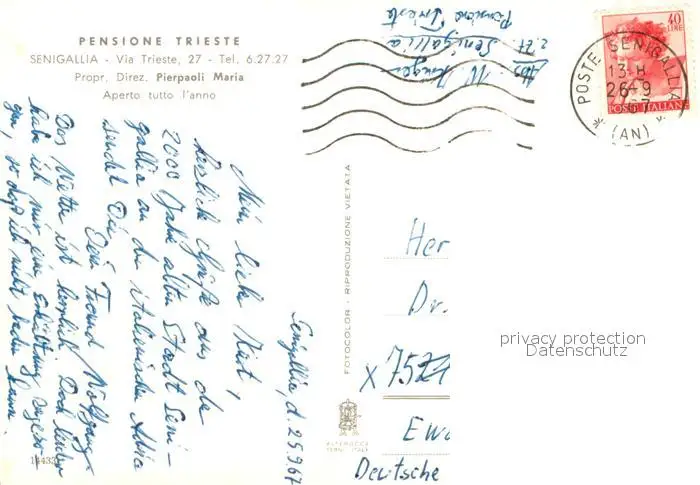 PENSIONE TRIESTE
SENIGALLIA - Via Trieste, 27 - Tel. 6.27.27
Propr. Direz. Pierpaoli Maria
Aperto tutto l'anno
Abs. W.
z. Zt. Senigallia
Pensione Trieste
40
LIRE
POSTE ITALIANE
POSTE SENIGALLIA
13-H
26-9
67
(AN)
Senigallia, d. 25.9.67
Mein lieber Kurt,
herzliche Grüße aus der
2000 Jahre alten Stadt Seni-
gallia an der italienischen Adria
sendet Dir
Dein Freund Wolfgang
Das Wetter ist herrlich. Doch leider
habe ich mir eine Erkältung zugezo-
gen, so daß ich nicht baden kann.
FOTOCOLOR - RIPRODUZIONE VIETATA
Her
Dr.
x 7524
Ewa
Deutsche
privacy protection
Datenschutz
ALTEROCCA
TERNI
14433